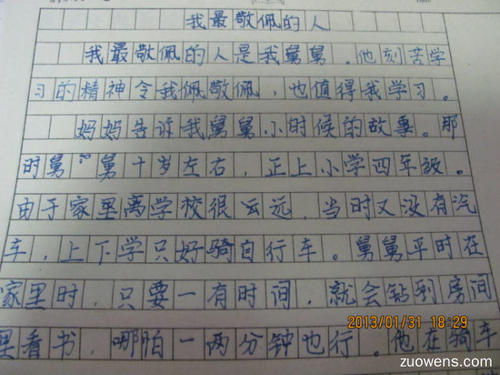 我最敬佩的人
我最敬佩的人是我舅舅.他刻苦学
习的精神令我佩敬佩,也值得我学习。
妈妈告诉我舅舅小时候的故事。那
时舅舅十岁左右,正上小学四年级。
由于家里离学校很远,当时又没有汽
车,上下学只好骑自行车。舅舅平时在
家里时,只要一有时间,就会钻到房间
里看书,哪怕一两分钟也行。他在骑车
2013/01/31 18:29
zuowens.com